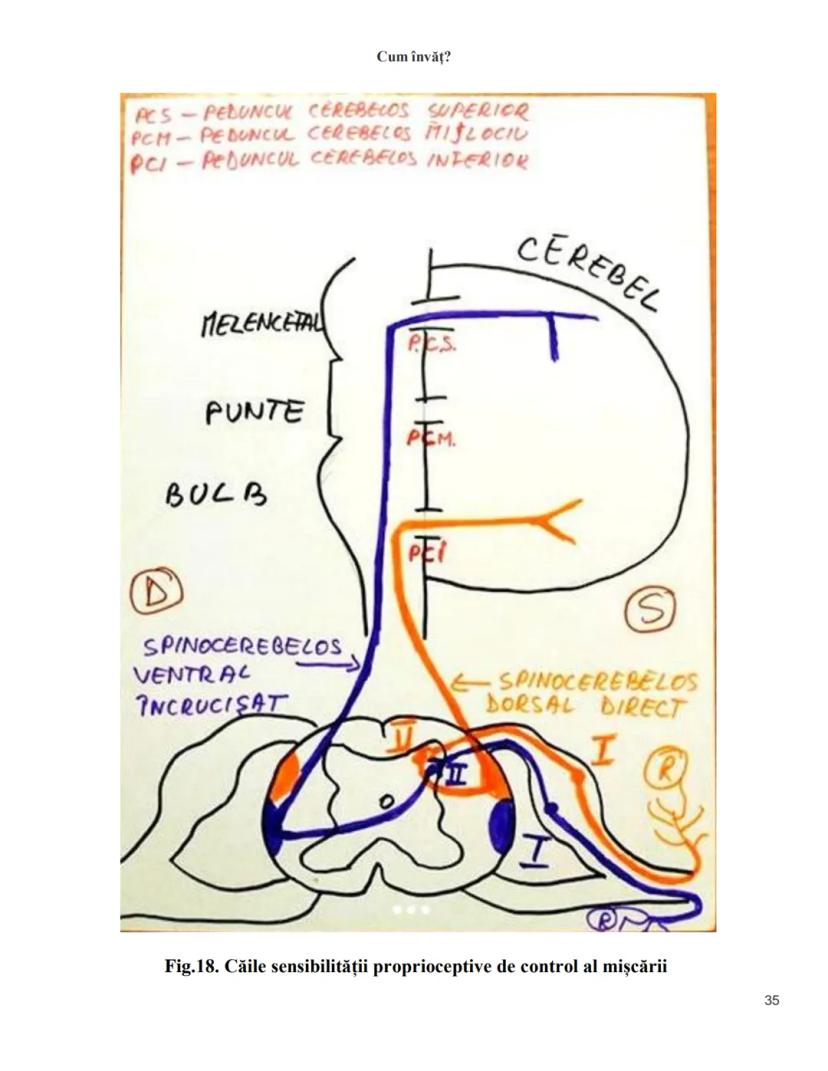 Cum învăț?
PCS – PEDUNCUL CEREBELOS SUPERIOR
PCM – PEDUNCUL CEREBELOS MIJLOCIU
PCI – PEDUNCUL CEREBELOS INFERIOR
CEREBEL
MEZENCEFAL
P.C.S.
PUNTE
PCM.
BULB
PCI
D
S
SPINOCEREBELOS
VENTRAL
ÎNCRUCIȘAT
SPINOCEREBELOS
DORSAL DIRECT
II
I
R
II
I
R
Fig.18. Căile sensibilității proprioceptive de control al mișcării
35